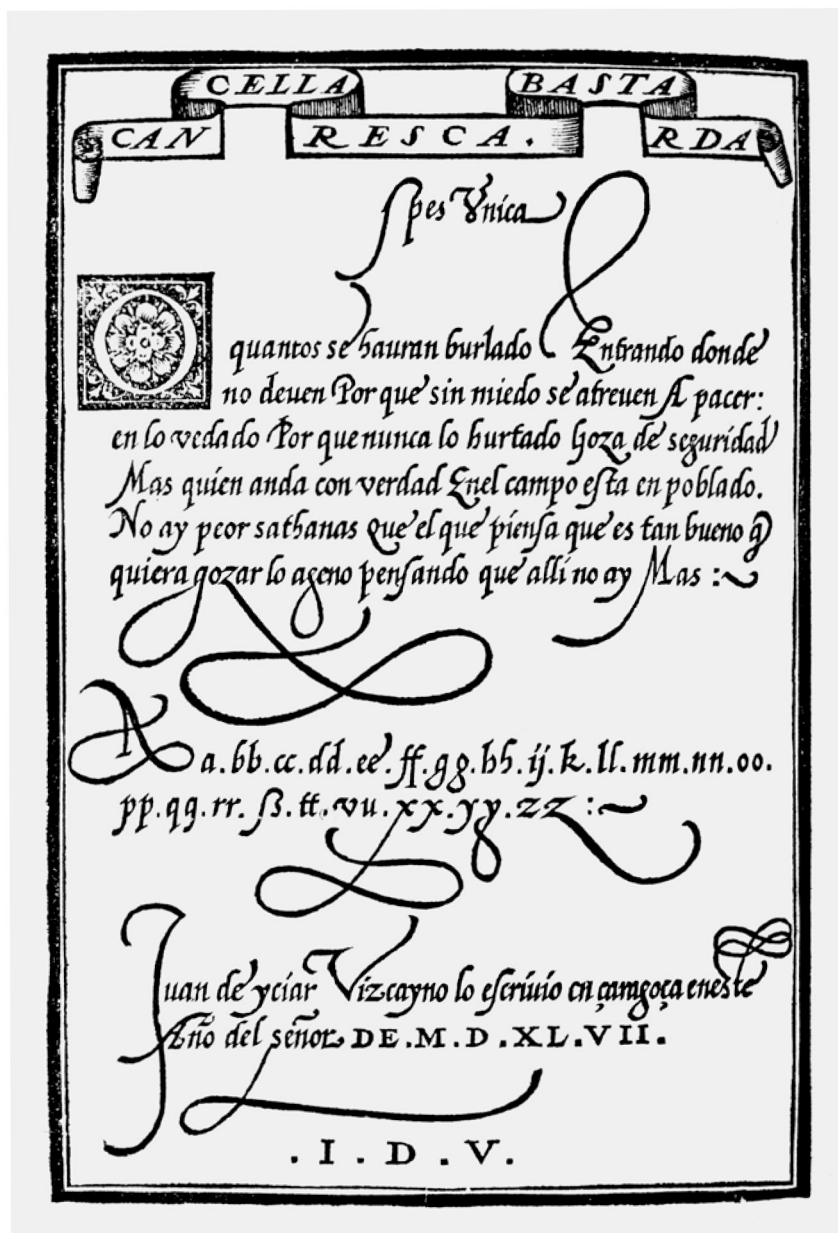 CANCELLARESCA. BASTARDA
Spes Vnica
O quantos se hauran burlado Entrando donde
no deuen Por que sin miedo se atreuen A pacer:
en lo vedado Por que nunca lo hurtado Goza de seguridad
Mas quien anda con verdad Enel campo esta en poblado.
No ay peor sathanas Que el que piensa que es tan bueno q̃
quiera gozar lo ageno pensando que alli no ay Mas :~
A a.bb.cc.dd.ee.ff.gg.hh.ij.k.ll.mm.nn.oo.
pp.qq.rr.ſs.tt.vu.xx.yy.zz :~
Juan de yciar Vizcayno lo escriuio en çaragoça eneste
Año del señor DE.M.D.XL.VII.
.I.D.V.